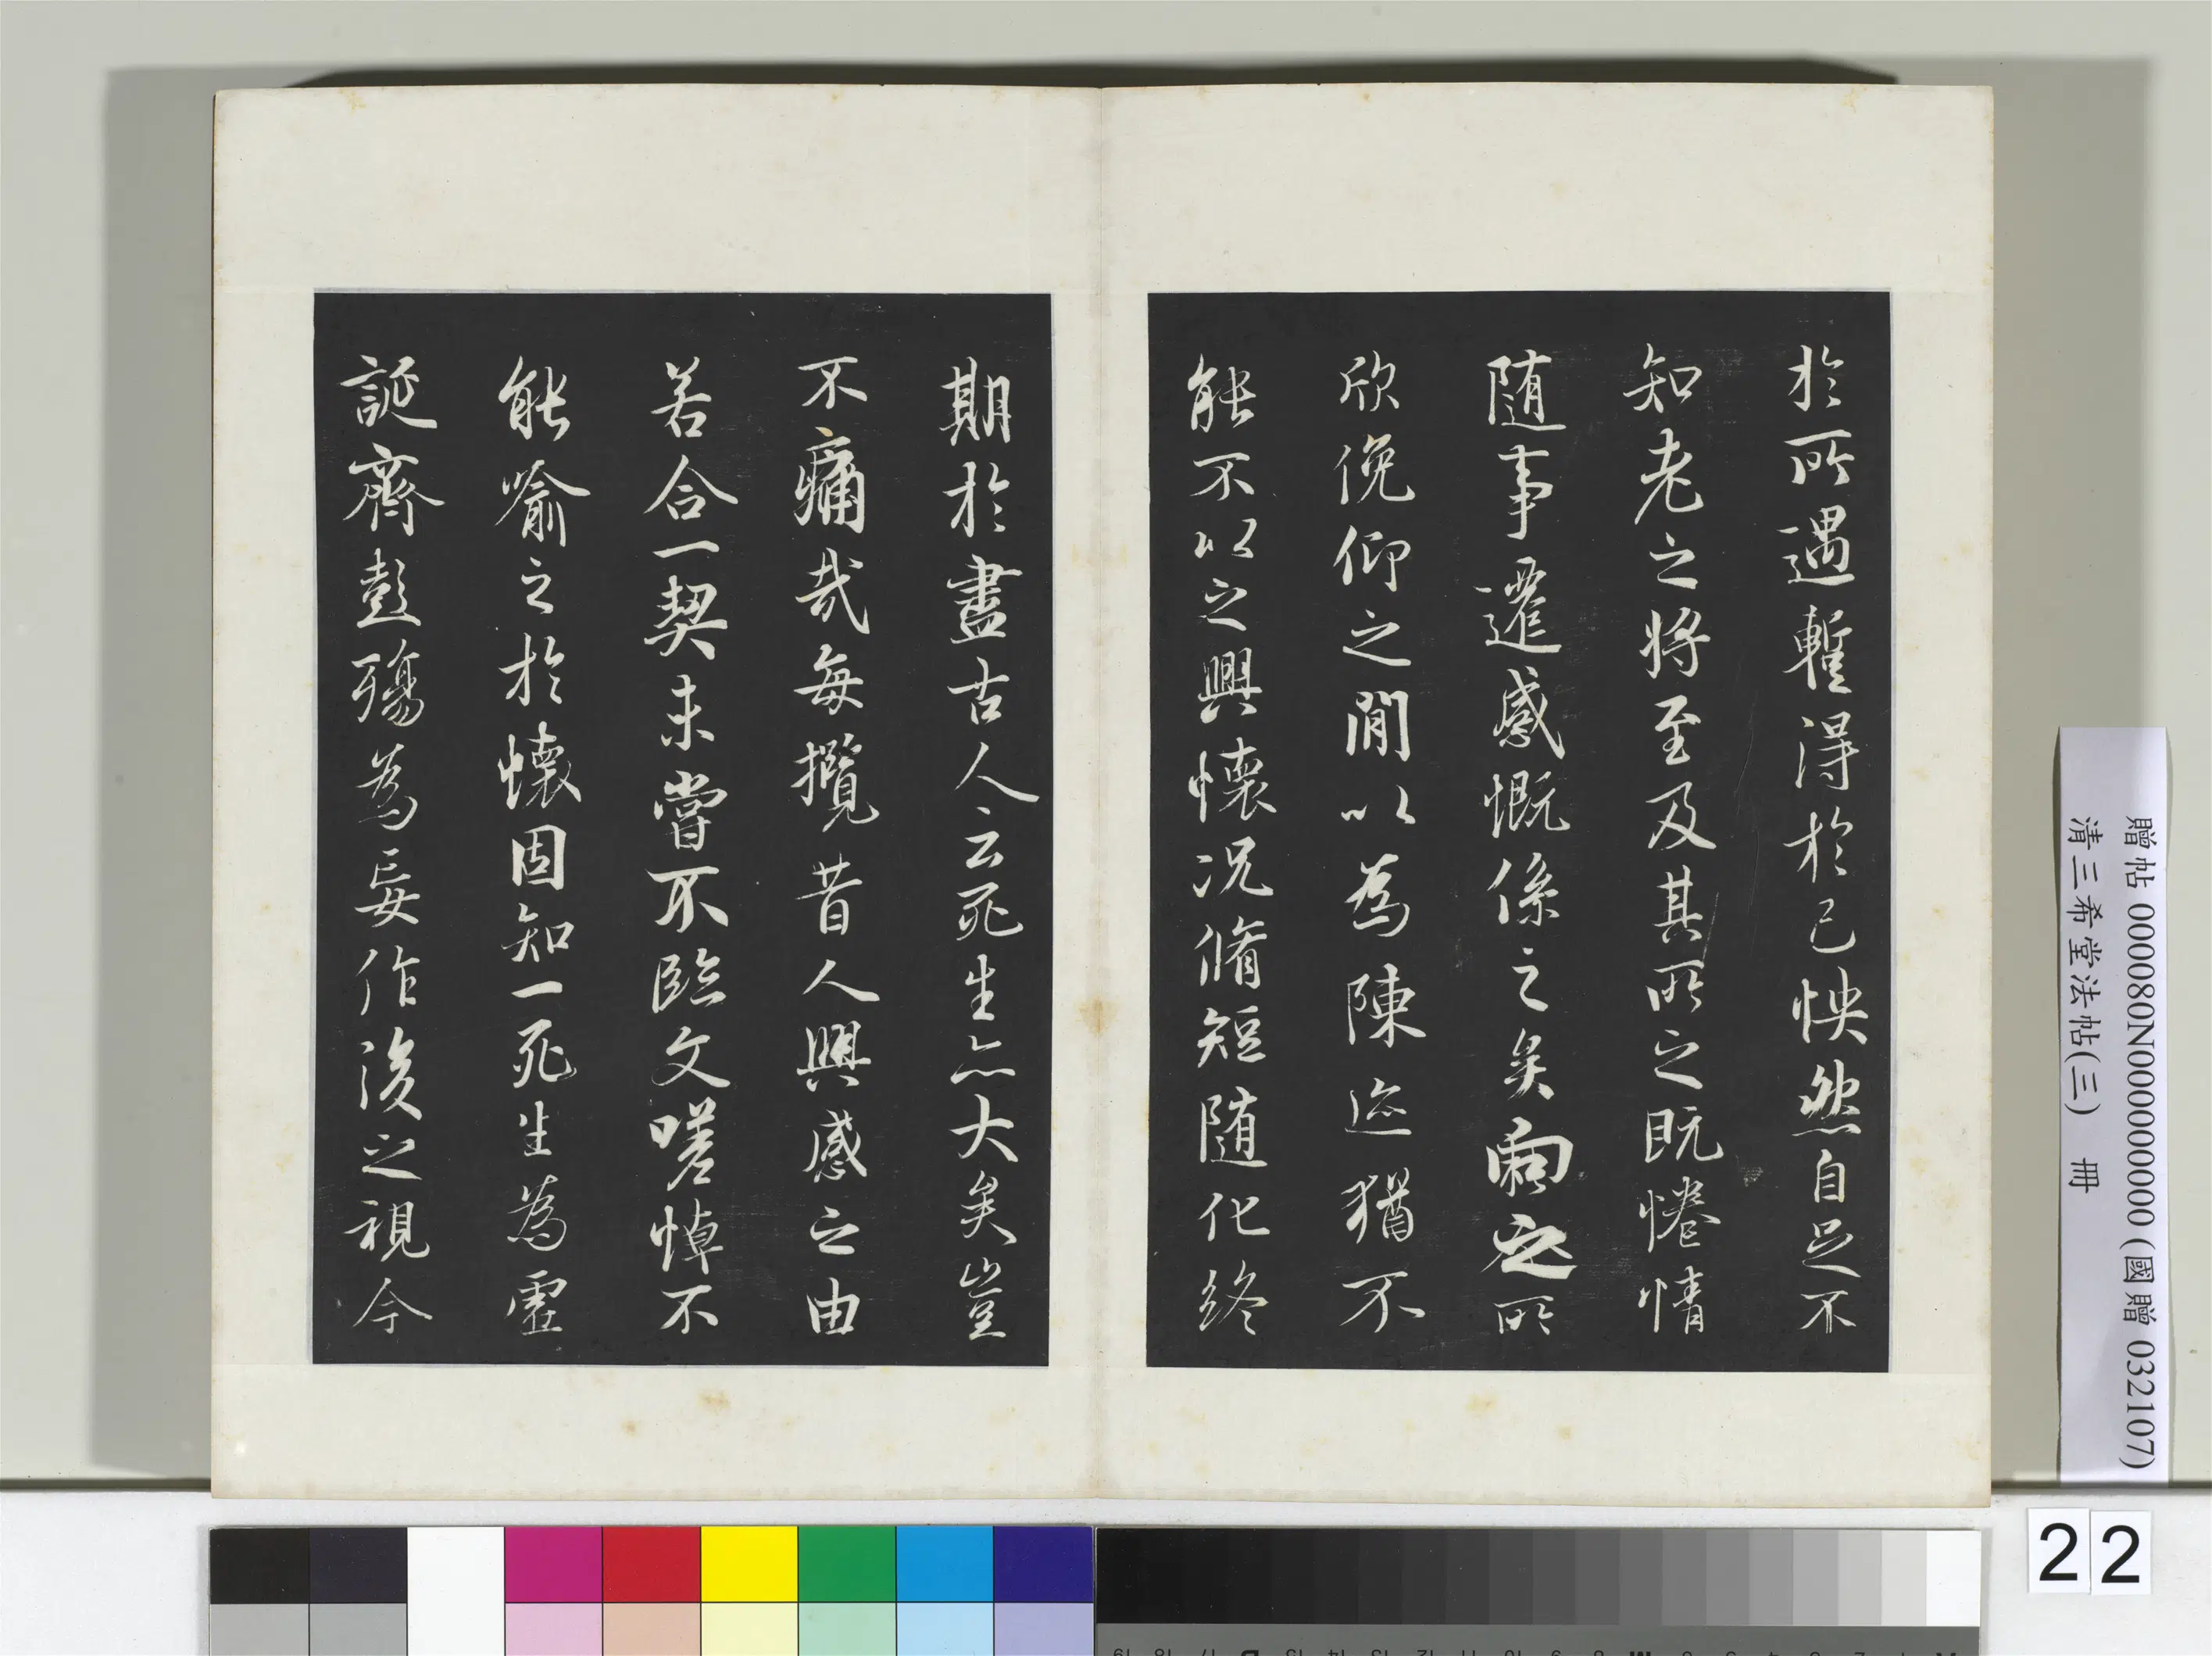 於所遇暫得於己怏然自足不
知老之將至及其所之既惓情
随事遷感慨係之矣向之所
欣俛仰之間以為陳迹猶不
能不以之興懷況脩短随化終
期於盡古人云死生亦大矣豈
不痛哉每攬昔人興感之由
若合一契未嘗不臨文嗟悼不
能喻之於懷固知一死生為虛
誕齊彭殤為妄作後之視今
贈帖 000080N000000000 (國贈 032107)
清三希堂法帖(三) 冊
22